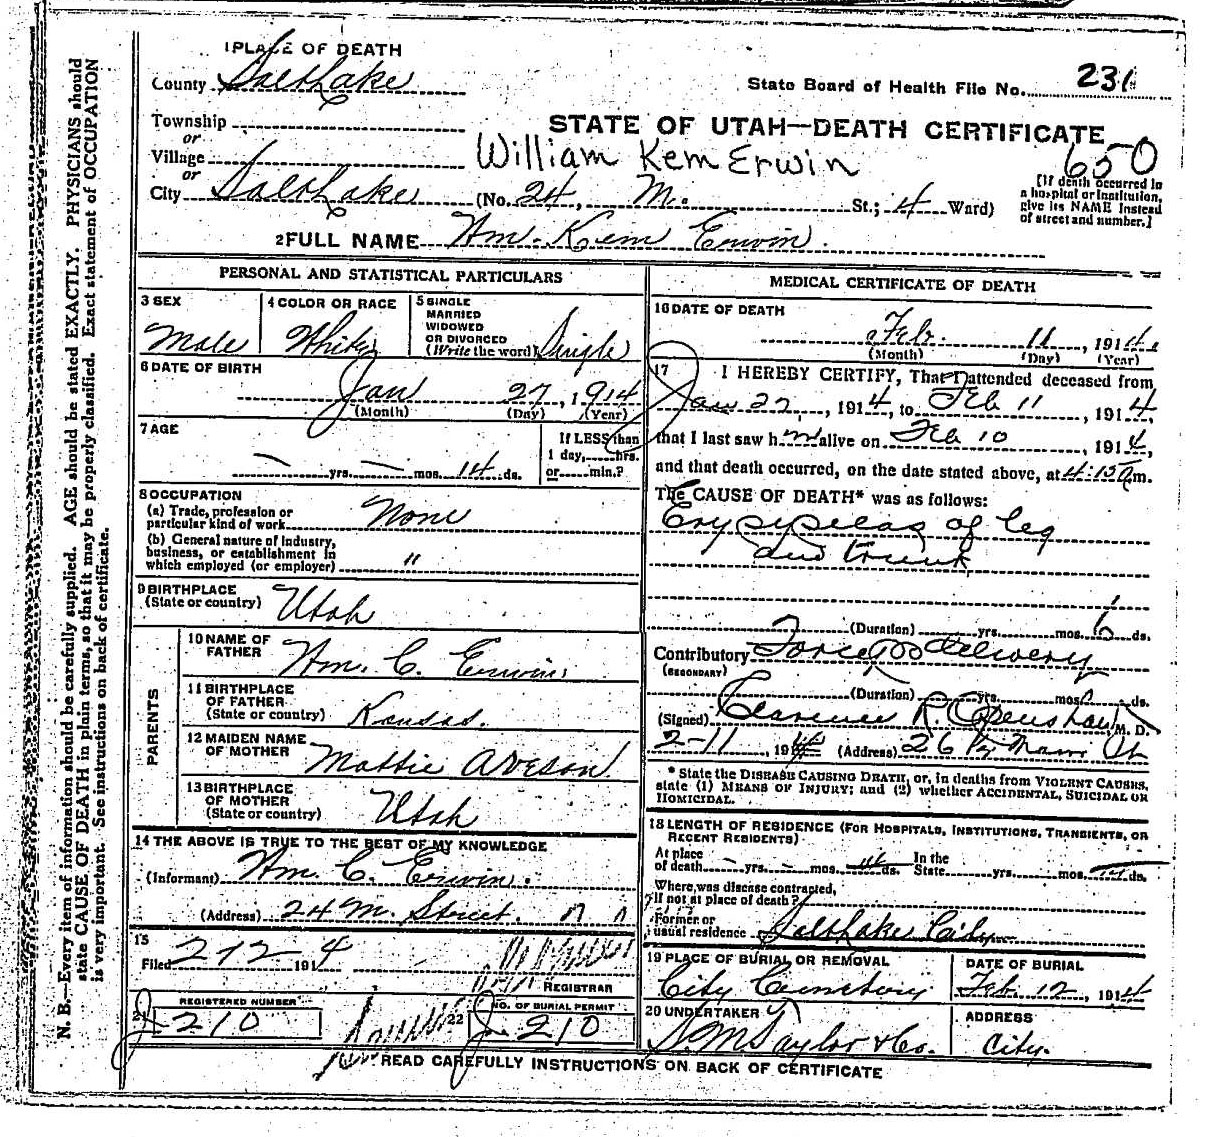 1 PLACE OF DEATH
County Salt Lake
State Board of Health File No. 231
Township
or
STATE OF UTAH—DEATH CERTIFICATE
Village
William Kem Erwin
650
or
City Salt Lake (No. 24, M. St.; 4 Ward)
[If death occurred in a hospital or institution, give its NAME instead of street and number.]
2 FULL NAME Wm. Kem Erwin.
PERSONAL AND STATISTICAL PARTICULARS
3 SEX
Male
4 COLOR OR RACE
White
5 SINGLE
MARRIED
WIDOWED
OR DIVORCED
(Write the word) Single
6 DATE OF BIRTH
Jan 27, 1914
(Month) (Day) (Year)
7 AGE
— yrs. — mos. 14 ds.
If LESS than
1 day, hrs.
or min.?
8 OCCUPATION
(a) Trade, profession or
particular kind of work None
(b) General nature of industry,
business, or establishment in
which employed (or employer) "
9 BIRTHPLACE
(State or country) Utah
PARENTS
10 NAME OF
FATHER Wm. C. Erwin.
11 BIRTHPLACE
OF FATHER
(State or country) Kansas.
12 MAIDEN NAME
OF MOTHER Mattie Aveson.
13 BIRTHPLACE
OF MOTHER
(State or country) Utah
14 THE ABOVE IS TRUE TO THE BEST OF MY KNOWLEDGE
(Informant) Wm. C. Erwin.
(Address) 24 M. Street.
15
Filed 2 12 1914
REGISTRAR
21 REGISTERED NUMBER
210
22 NO. OF BURIAL PERMIT
210
MEDICAL CERTIFICATE OF DEATH
16 DATE OF DEATH
Feb. 11, 1914.
(Month) (Day) (Year)
17 I HEREBY CERTIFY, That I attended deceased from
Jan 27, 1914, to Feb 11, 1914,
that I last saw h m alive on Feb 10 1914,
and that death occurred, on the date stated above, at 4:15 a m.
The CAUSE OF DEATH* was as follows:
Erysipelas of leg
and trunk
(Duration) yrs. mos. 6 ds.
Contributory Forceps delivery
(SECONDARY)
(Duration) yrs. mos. ds.
(Signed) Clarence R. Openshaw M. D.
2-11, 1914 (Address) 26 Main St
* State the DISEASE CAUSING DEATH, or, in deaths from VIOLENT CAUSES,
state (1) MEANS OF INJURY; and (2) whether ACCIDENTAL, SUICIDAL OR
HOMICIDAL.
18 LENGTH OF RESIDENCE (FOR HOSPITALS, INSTITUTIONS, TRANSIENTS, OR
RECENT RESIDENTS)
At place
of death — yrs. — mos. 14 ds. In the
State yrs. mos. 14 ds.
Where was disease contracted,
if not at place of death?
Former or
usual residence Salt Lake City
19 PLACE OF BURIAL OR REMOVAL
City Cemetery
DATE OF BURIAL
Feb. 12, 1914
20 UNDERTAKER
S. M. Taylor & Co.
ADDRESS
City.
READ CAREFULLY INSTRUCTIONS ON BACK OF CERTIFICATE
N. B.—Every item of information should be carefully supplied. AGE should be stated EXACTLY. PHYSICIANS should
state CAUSE OF DEATH in plain terms, so that it may be properly classified. Exact statement of OCCUPATION
is very important. See instructions on back of certificate.